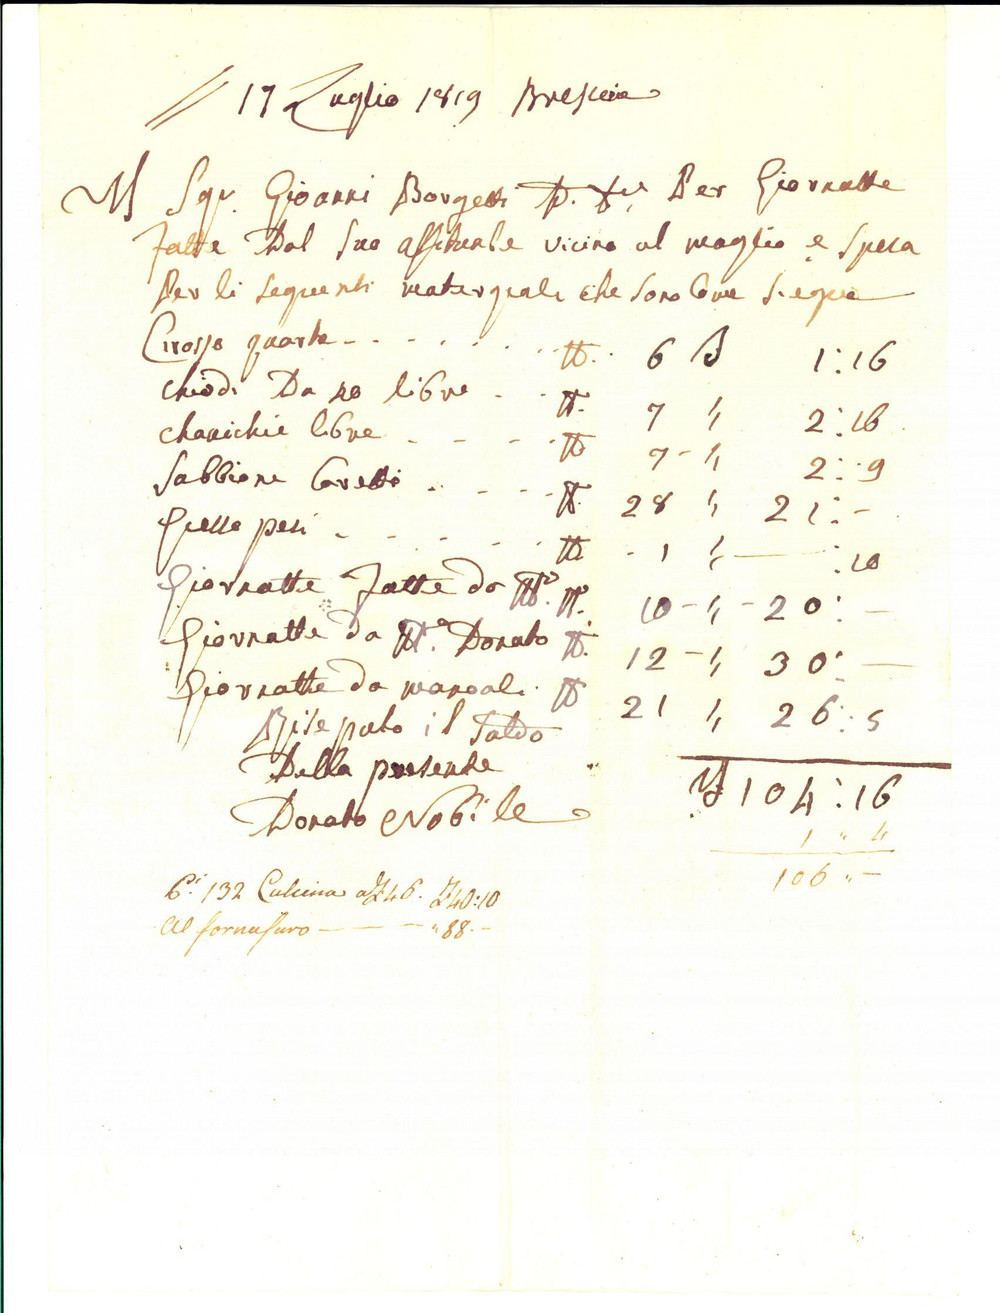 17 Luglio 1819 Brescia
Il Sgr. Gioanni Borgetti Per Giornatte
fatte Dal suo affituale vicino al maglio e spesa
Per li seguenti che sono Come Siegue
quarte - - - - - - 6 1:16
chiodi Da 20 libre - - 7 " 2:16
libre - - - 7 - " 2:9
Sabbione Caretti - - - 28 " 21:-
Gesso pesi - - - - - - 1 " :10
Giornatte fatte da 10 - " - 20:-
Giornatte da Donato 12 - " 30:-
Giornatte da manoali 21 " 26:5
il Saldo
Della presente 104:16
Donato Nobile 1 " 4
106 " -
132 Calcina a £46. £40:10
Al fornasaro - - - " 88 -